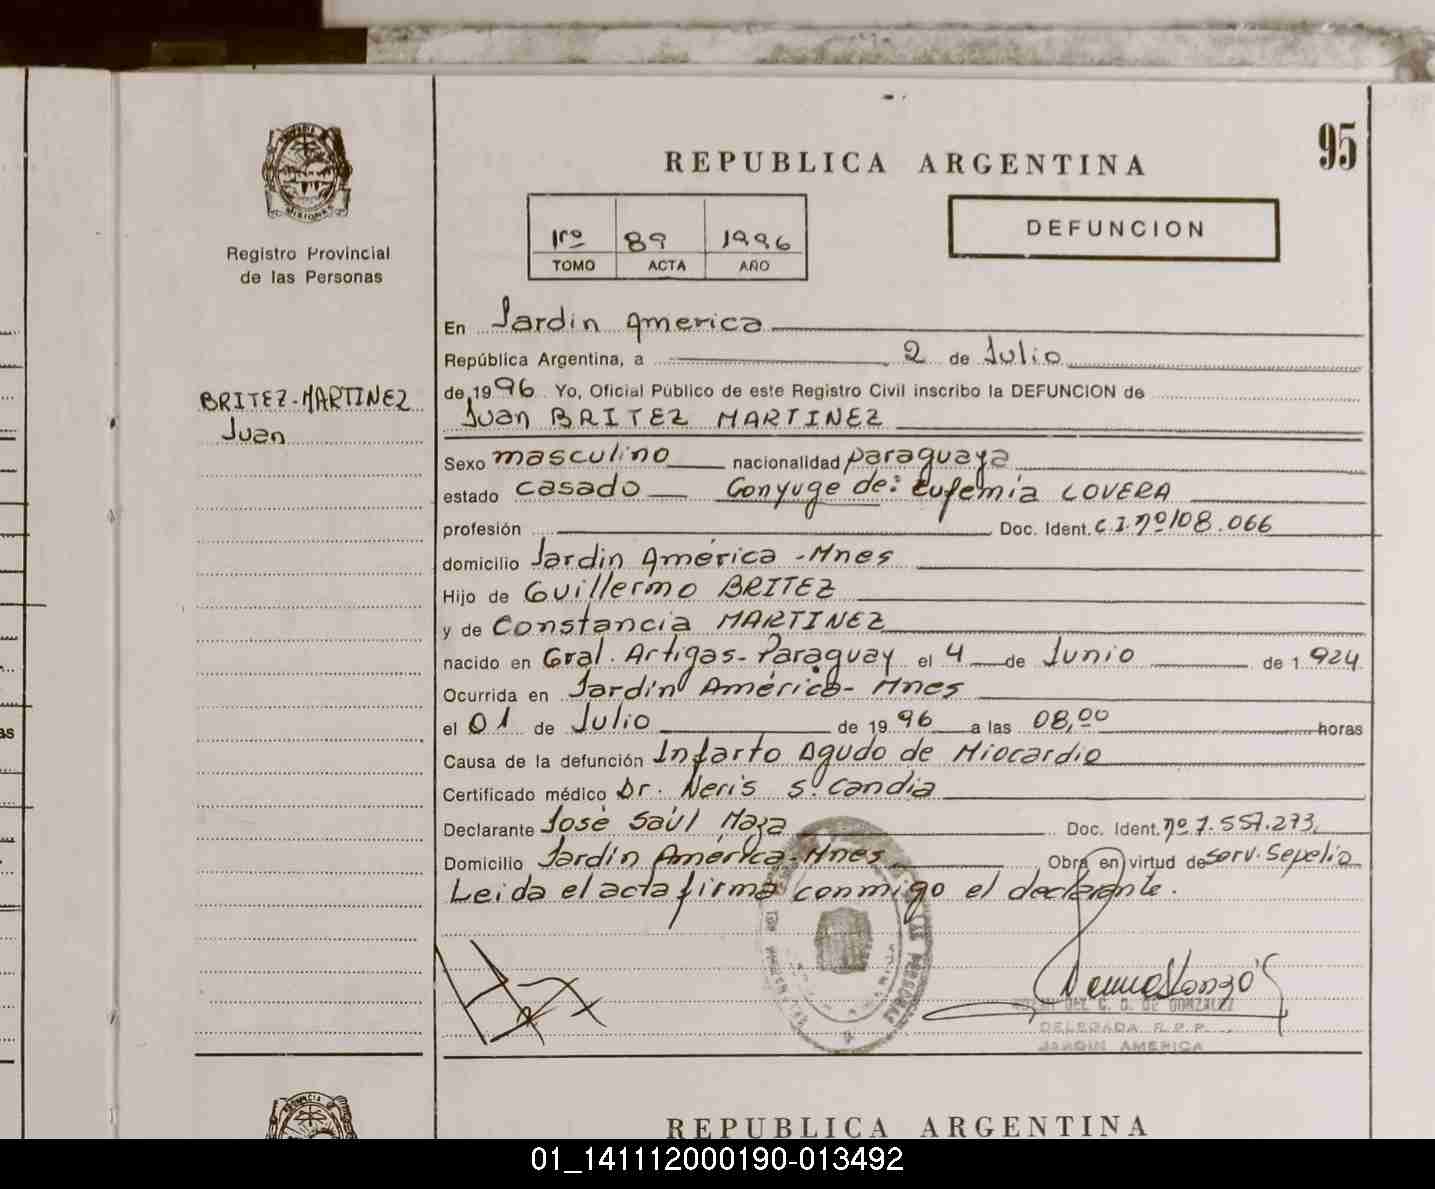 95
REPUBLICA ARGENTINA
PROVINCIA DE
MISIONES
Registro Provincial
de las Personas
1ro 89 1996
TOMO ACTA AÑO
DEFUNCION
En Jardin America
República Argentina, a 2 de Julio
de 1996 Yo, Oficial Público de este Registro Civil inscribo la DEFUNCION de
BRITEZ-MARTINEZ
Juan
Juan BRITEZ MARTINEZ
Sexo masculino nacionalidad paraguaya
estado casado Conyuge de: Eufemia LOVERA
profesión Doc. Ident. C.I. nº 108.066
domicilio Jardin América - Mnes
Hijo de Guillermo BRITEZ
y de Constancia MARTINEZ
nacido en Gral. Artigas - Paraguay el 4 de Junio de 1.924
Ocurrida en Jardin América - Mnes
el 01 de Julio de 1996 a las 08,00 horas
Causa de la defunción Infarto Agudo de Miocardio
Certificado médico Dr. Neris S. Candia
Declarante José Saúl Maza Doc. Ident. nº 7.557.273
Domicilio Jardin América - Mnes Obra en virtud de serv. Sepelio
Leida el acta firma conmigo el declarante.
DEL C. G. DE GONZALEZ
DELEGADA R.P.P.
JARDIN AMERICA
as
REPUBLICA ARGENTINA
01_141112000190-013492